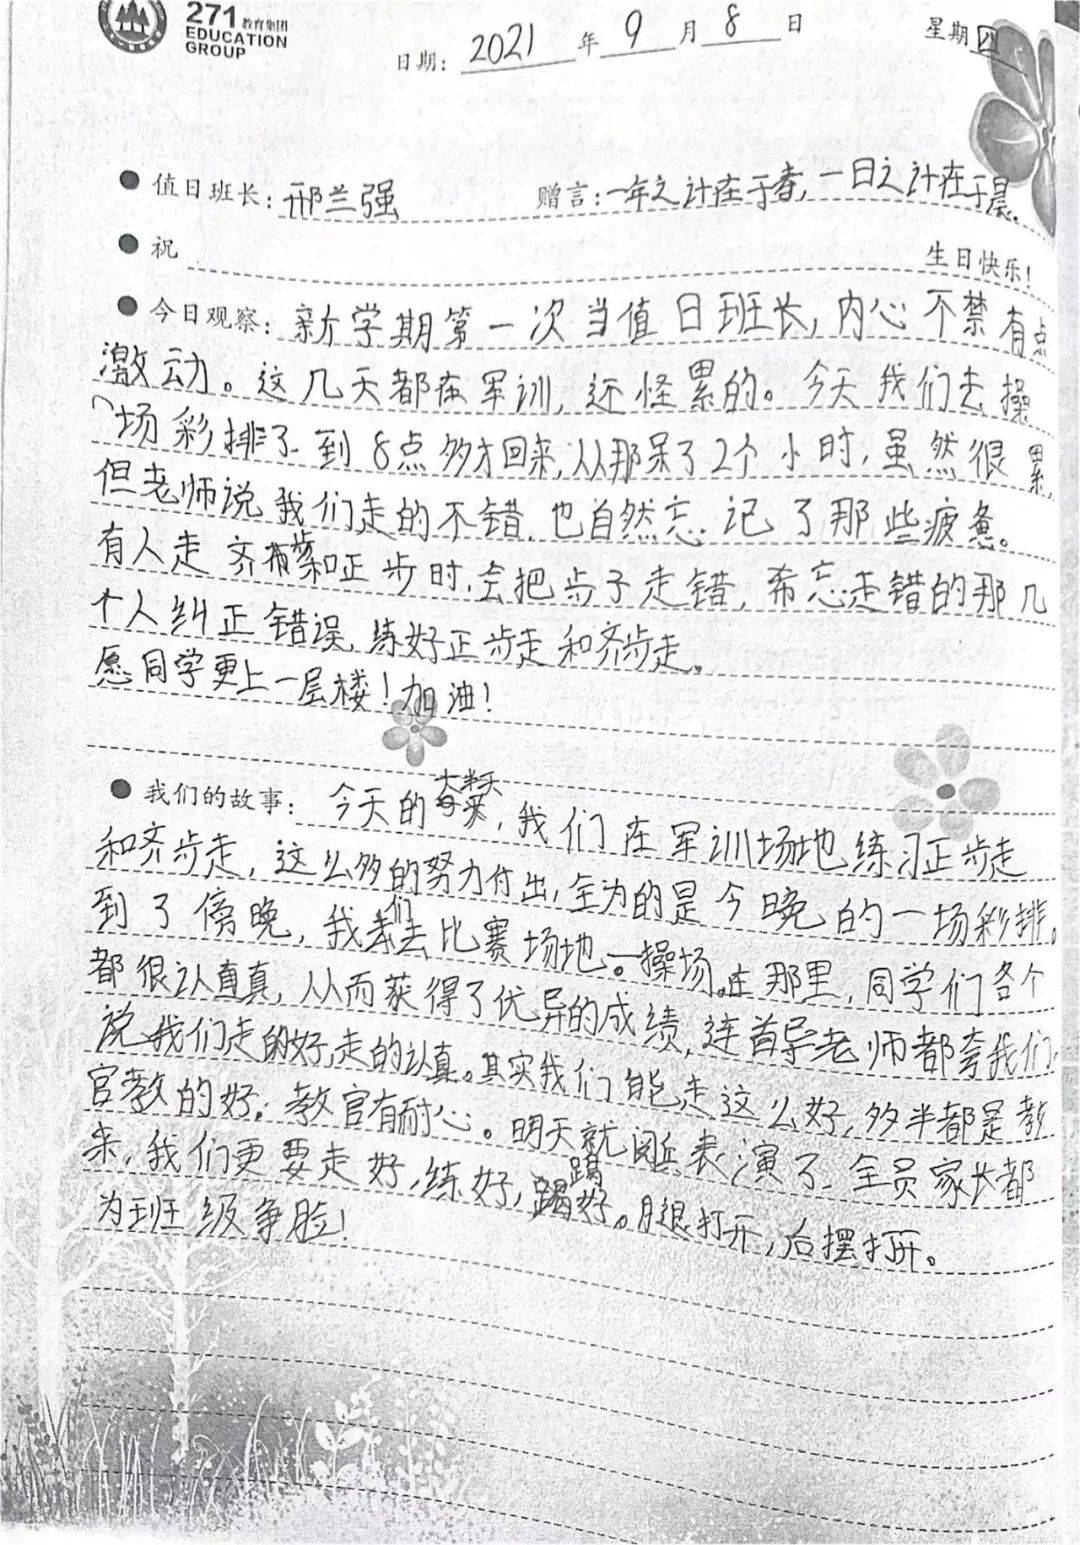 271教育集团
EDUCATION
GROUP
日期: 2021 年 9 月 8 日 星期四
值日班长: 邢兰强 赠言: 一年之计在于春, 一日之计在于晨。
祝 生日快乐!
今日观察: 新学期第一次当值日班长, 内心不禁有点
激动。这几天都在军训, 还怪累的。今天我们去操
场彩排了 到8点多才回来, 从那呆了2个小时, 虽然很累,
但老师说我们走的不错, 也自然忘记了那些疲惫。
有人走齐步和正步时, 会把步子走错, 希忘走错的那几
个人纠正错误, 练好正步走和齐步走。
愿同学更上一层楼! 加油!
我们的故事: 今天的大半天, 我们在军训场地练习正步走
和齐步走, 这么多的努力付出, 全为的是今晚的一场彩排。
到了傍晚, 我们去比赛场地。操场。在那里, 同学们各个
都很认真, 从而获得了优异的成绩, 连首导老师都夸我们
说我们走的好, 走的认真。其实我们能走这么好, 多半都是教
官教的好, 教官有耐心。明天就阅兵表演了 全员家长都
来, 我们更要走好, 练好, 踢好。腿打开, 后摆打开。
为班级争脸!